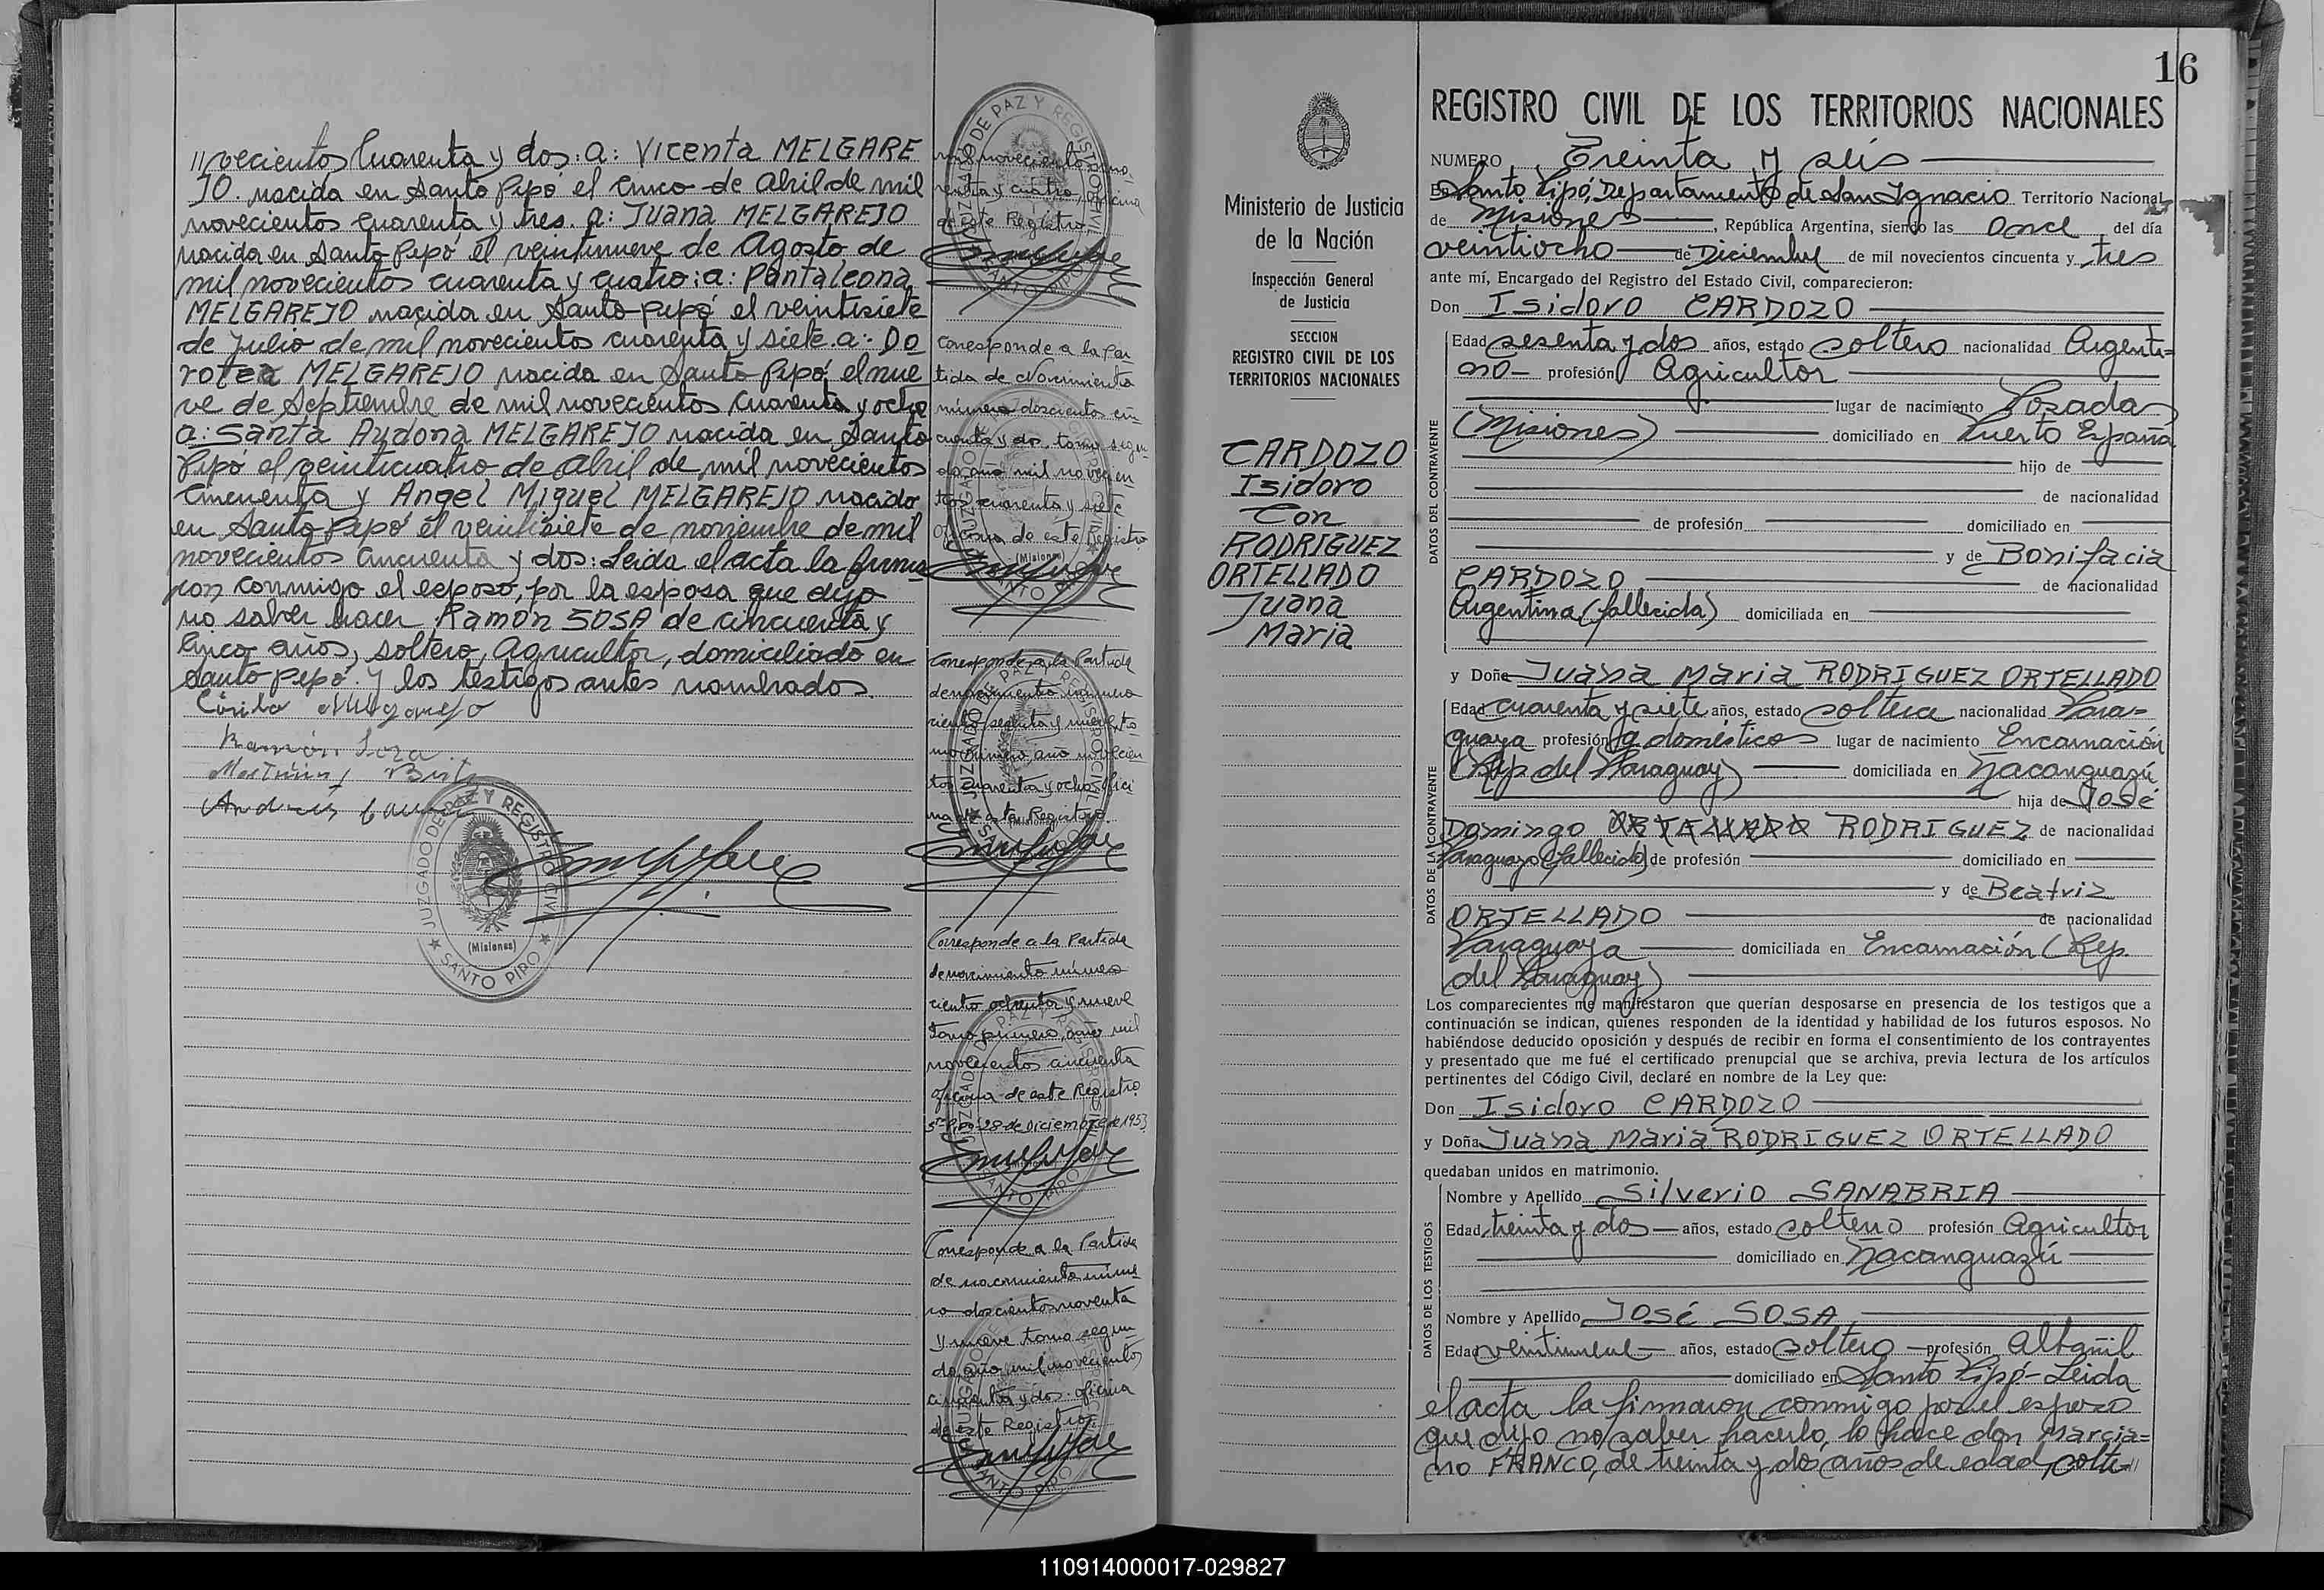 // vecientos Cuarenta y dos: a: Vicenta MELGARE
JO. nacida en Santo Pipó el cinco de Abril de mil
novecientos cuarenta y tres. a: Juana MELGAREJO
nacida en Santo Pipó el veintinueve de Agosto de
mil novecientos cuarenta y cuatro: a: Pantaleona
MELGAREJO nacida en Santo Pipó el veintisiete
de Julio de mil novecientos cuarenta y siete. a: Do
rotea MELGAREJO nacida en Santo Pipó, el nue
ve de Septiembre de mil novecientos cuarenta y ocho
a: Santa Aydona MELGAREJO nacida en Santo
Pipó el veinticuatro de Abril de mil novecientos
cincuenta y Angel Miguel MELGAREJO nacido
en Santo Pipó el veintisiete de noviembre de mil
novecientos cincuenta y dos: Leida el acta la firma
ron conmigo el esposo, por la esposa que dijo
no saber hacer Ramón SOSA de cincuenta y
cinco años, soltero, Agricultor, domiciliado en
Santo Pipó. y los testigos antes nombrados.
Melgarejo
Ramón Soza
JUZGADO DE PAZ Y REGISTRO CIVIL
(Misiones)
SANTO PIPO
mil novecientos cua
renta y cuatro, oficina
de este Registro
Corresponde a la Par
tida de Nacimiento
número doscientos cin
cuenta y dos, tomo segun
do año mil novecien
tos cuarenta y siete
Oficina de este Registro
Corresponde a la Partida
de nacimiento número
ciento setenta y nueve to
mo primero año novecien
tos cuarenta y ocho ofici
na de este Registro.
Corresponde a la Partida
de nacimiento número
ciento ochenta y nueve
tomo primero, año mil
novecientos cincuenta
oficina de este Registro
Sto Pipo 28 de Diciembre de 1953
Corresponde a la Partida
de nacimiento núme
ro doscientos noventa
y nueve tomo segun
do, año mil novecientos
cincuenta y dos. oficina
de este Registro
Ministerio de Justicia
de la Nación
Inspección General
de Justicia
SECCION
REGISTRO CIVIL DE LOS
TERRITORIOS NACIONALES
CARDOZO
Isidoro
Con
RODRIGUEZ
ORTELLADO
Juana
Maria
16
REGISTRO CIVIL DE LOS TERRITORIOS NACIONALES
NUMERO Treinta y seis
En Santo Pipó, Departamento de San Ignacio Territorio Nacional
de Misiones, República Argentina, siendo las once del día
veintiocho de Diciembre de mil novecientos cincuenta y tres
ante mí, Encargado del Registro del Estado Civil, comparecieron:
Don Isidoro CARDOZO
DATOS DEL CONTRAYENTE
Edad sesenta y dos años, estado soltero nacionalidad Argenti=
no- profesión Agricultor
lugar de nacimiento Posadas
(Misiones) domiciliado en Puerto España
hijo de
de nacionalidad
de profesión domiciliado en
y de Bonifacia
CARDOZO de nacionalidad
Argentina (fallecida) domiciliada en
y Doña Juana Maria RODRIGUEZ ORTELLADO
DATOS DE LA CONTRAYENTE
Edad cuarenta y siete años, estado soltera nacionalidad Para-
guaya profesión Q. domésticos lugar de nacimiento Encarnación
(Rep del Paraguay) domiciliada en Ñacanguazú
hija de José
Domingo RODRIGUEZ de nacionalidad
Paraguayo (fallecido) de profesión domiciliado en
y de Beatriz
ORTELLADO de nacionalidad
Paraguaya domiciliada en Encarnación (Rep.
del Paraguay)
Los comparecientes me manifestaron que querían desposarse en presencia de los testigos que a
continuación se indican, quienes responden de la identidad y habilidad de los futuros esposos. No
habiéndose deducido oposición y después de recibir en forma el consentimiento de los contrayentes
y presentado que me fué el certificado prenupcial que se archiva, previa lectura de los artículos
pertinentes del Código Civil, declaré en nombre de la Ley que:
Don Isidoro CARDOZO
y Doña Juana Maria RODRIGUEZ ORTELLADO
quedaban unidos en matrimonio.
DATOS DE LOS TESTIGOS
Nombre y Apellido Silverio SANABRIA
Edad treinta y dos años, estado soltero profesión Agricultor
domiciliado en Ñacanguazú
Nombre y Apellido José SOSA
Edad veintinueve años, estado soltero profesión Albañil
domiciliado en Santo Pipó- Leida
el acta la firmaron conmigo por el esposo
que dijo no saber hacerlo, lo hace don Marcia=
no FRANCO, de treinta y dos años de edad, solte-//
110914000017-029827